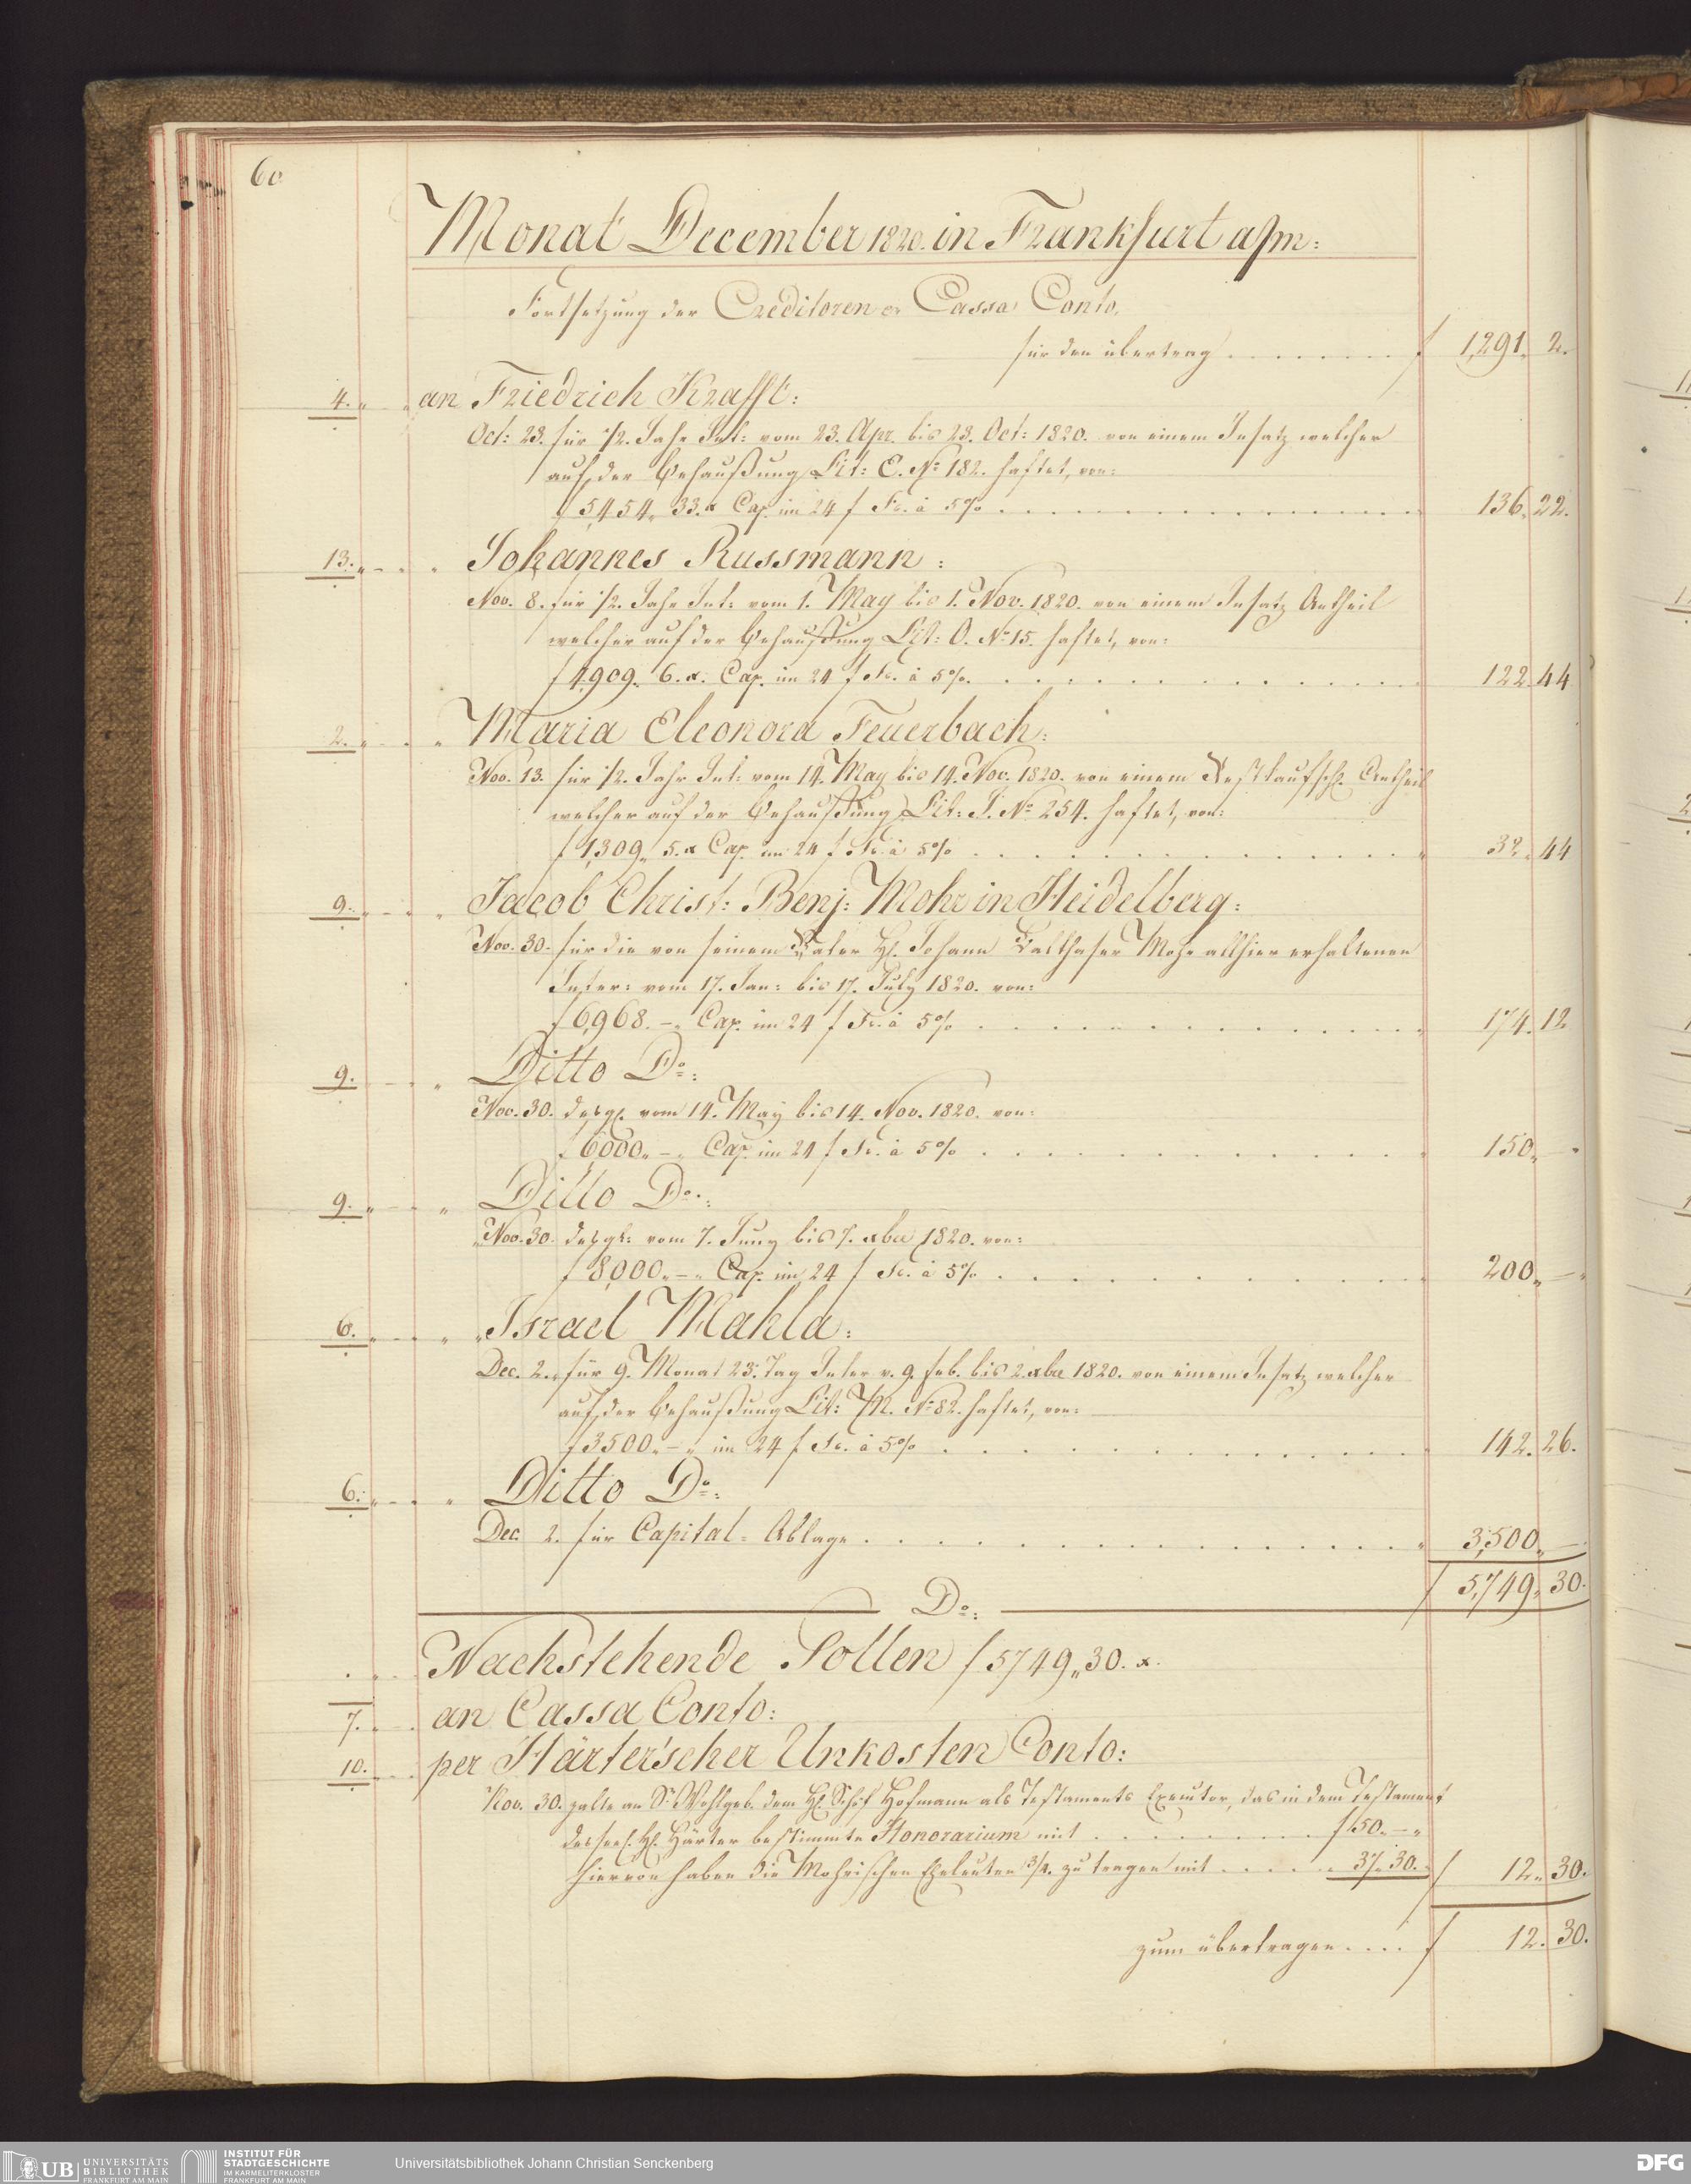 60
Monat December 1820. in Frankfurt a/m:
Fortsetzung der Creditoren Cassa Conto,
für den übertrag . . . . . . . . f 1,291. 2.
4. „ an Friedrich Krafft:
Oct: 23. für 1/2. Jahr Int: vom 23. Apr. bis 23. Oct: 1820. von einem Insatz welcher
auf der Behaußung Lit: E. No 182. haftet, von:
f 5,454„ 33.x Cap. im 24 f Fs. à 5% . . . . . . . . . . . . 136. 22.
13. „ - . „ Johannes Russmann:
Nov. 8. für 1/2. Jahr Int: vom 1. May bis 1. Nov. 1820. von einem Insatz Antheil
welcher auf der Behaußung Lit: O. No 15. haftet, von:
f 4,909„ 6. x. Cap. im 24 f Fs. à 5%. . . . . . . . . . . . 122. 44
2. „ - . „ Maria Eleonora Feuerbach:
Nov. 13. für 1/2. Jahr Int: vom 14. May bis 14. Nov. 1820. von einem Restkaufsch. Antheil
welcher auf der Behaußung Lit: J. No 254. haftet, von:
f 1,309„ 5. x Cap. im 24 f Fs. à 5% . . . . . . . . . . . . 32„ 44
9. „ - . „ Jacob Christ: Benj: Mohr in Heidelberg:
Nov. 30. für die von seinem Vater H. Johann Balthaser Mohr allhier erhaltenen
Inter: vom 17. Jan: bis 17. July 1820. von:
f 6,968. - „ Cap. im 24 f Fs. à 5% . . . . . . . . . . . . 174. 12
9. - . „ Ditto Do:
Nov. 30. desgl. vom 14. May bis 14. Nov. 1820. von:
f 6000„ - „ Cap. im 24 f Fs. à 5% . . . . . . . . . . . . 150„ - .
9. „ - „ Ditto Do:
Nov. 30. desgl: vom 7. Juny bis 7. xber 1820. von:
f 8,000„ - „ Cap. im 24 f Fs. à 5% . . . . . . . . . . . . 200„ - „
6. „ - . „ Israel Mahla:
Dec. 2. für 9. Monat 23. Tag Inter v. 9. Feb. bis 2. xber 1820. von einem Insatz welcher
auf der Behaußung Lit: M. No 82. haftet, von:
f 3500„ - „ im 24 f Fs. à 5% . . . . . . . . . . . . 142. 26.
6. „ - . „ Ditto Do:
Dec. 2. für Capital-Ablage . . . . . . . . . . . . 3,500„ -
f 5,749„ 30.
Do:
Nachstehende Sollen f 5749„ 30. x.
7. „ an Cassa Conto:
10. „ per Härter'scher Unkosten Conto:
Nov. 30. zalte an Sr Wohlgeb. dem H. Schöf Hofmann als Testaments Executor, das in dem Testament
des seel. H. Härter bestimmte Honorarium mit . . . . . . . f 50. - „
hiervon haben die Mohrischen Eheleuten 3/4. zu tragen mit . . . . . „ 37„ 30. f 12„ 30.
zum übertragen . . . . f 12. 30.
UB UNIVERSITÄTS
BIBLIOTHEK
FRANKFURT AM MAIN
INSTITUT FÜR
STADTGESCHICHTE
IM KARMELITERKLOSTER
FRANKFURT AM MAIN
Universitätsbibliothek Johann Christian Senckenberg
DFG